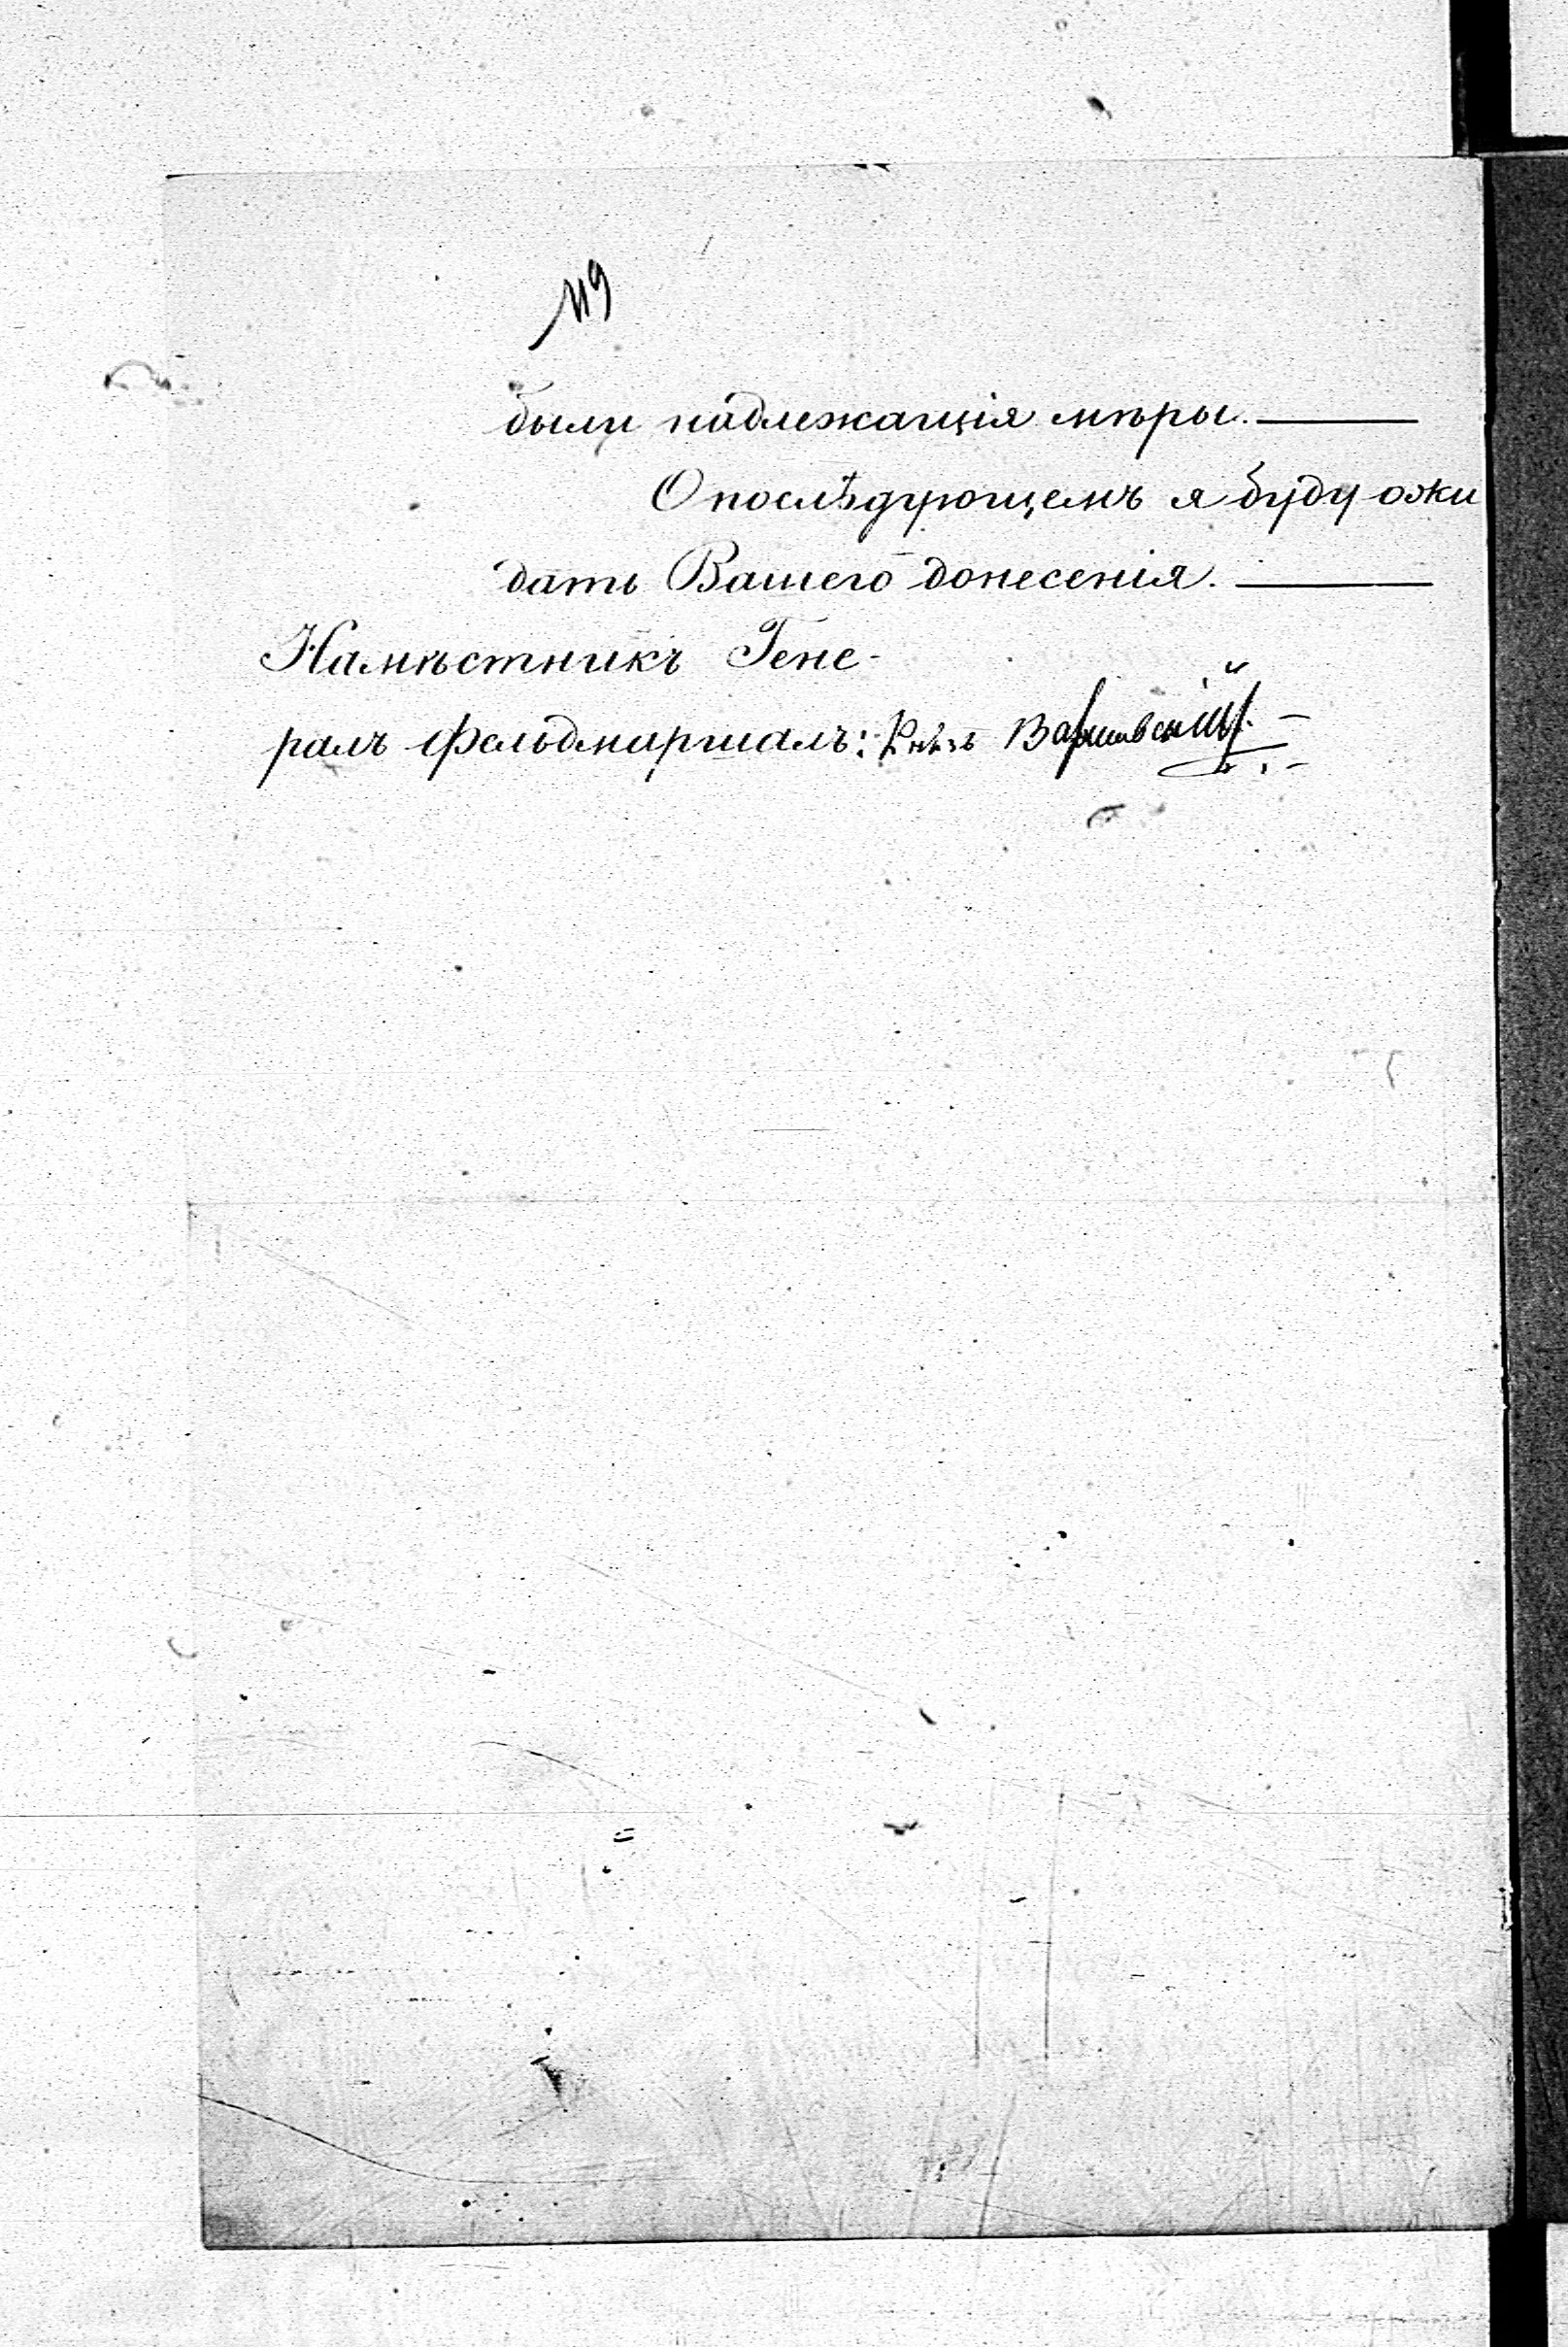 119
были надлежащія мѣры.
О послѣдующемъ я буду ожи
дать Вашего донесенія.
Намѣстникъ Гене-
ралъ Фельдмаршалъ: Князь Варшавскій